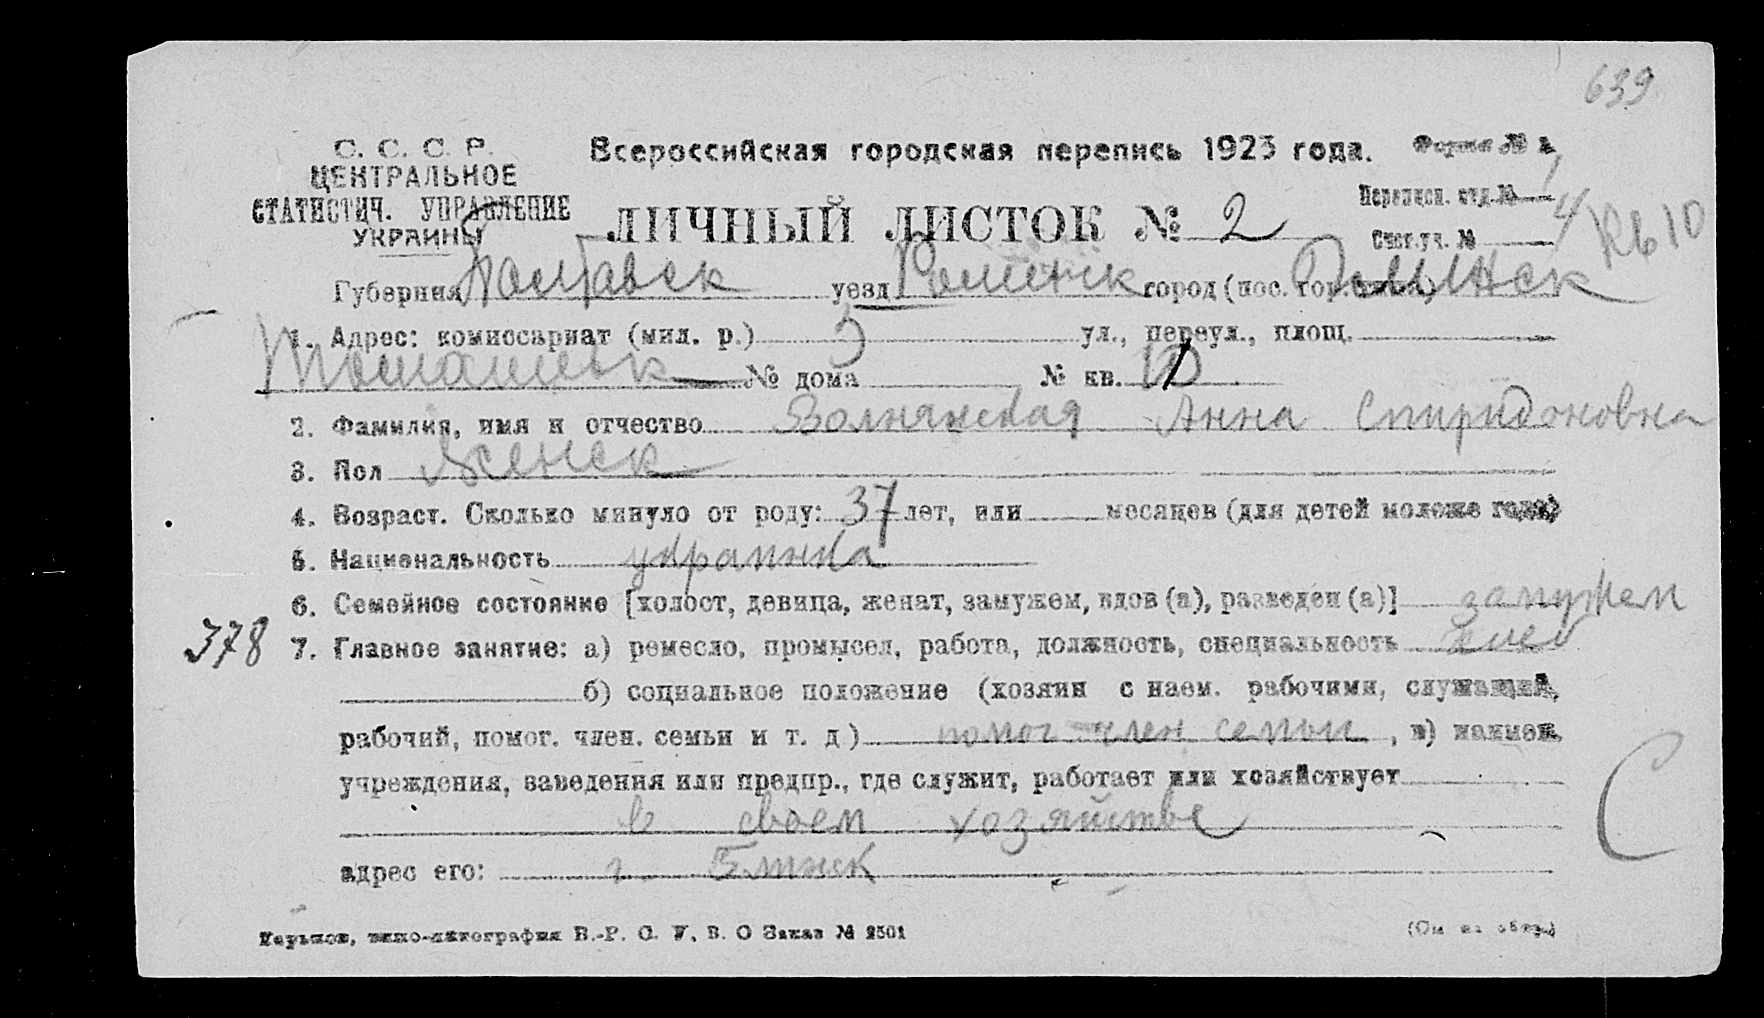 639
С. С. С. Р.
ЦЕНТРАЛЬНОЕ
СТАТИСТИЧ. УПРАВЛЕНИЕ
УКРАИНЫ
Всероссийская городская перепись 1923 года.
Форма № 1
Переписн. отд. № 1
ЛИЧНЫЙ ЛИСТОК № 2
Счетн. уч. № 4
Кв 10
Губерния Полтавск уезд Роменск город (пос. гор. типа)
1. Адрес: комиссариат (мил. р.) 5 ул., переул., площ.
№ дома № кв. 10
2. Фамилия, имя и отчество Волнянская Анна Спиридоновна
3. Пол женск
4. Возраст. Сколько минуло от роду: 37 лет, или месяцев (для детей моложе года)
5. Национальность украинка
6. Семейное состояние [холост, девица, женат, замужем, вдов (а), разведен (а)] замужем
378 7. Главное занятие: а) ремесло, промысел, работа, должность, специальность хлеб
б) социальное положение (хозяин с наем. рабочими, служащий,
рабочий, помог. член. семьи и т. д) помог член семьи , в) наимен.
учреждения, заведения или предпр., где служит, работает или хозяйствует
в своем хозяйстве
С
адрес его: г.
Харьков, цинко-литография В.-Р. Заказ № 2501
(См на обор.)